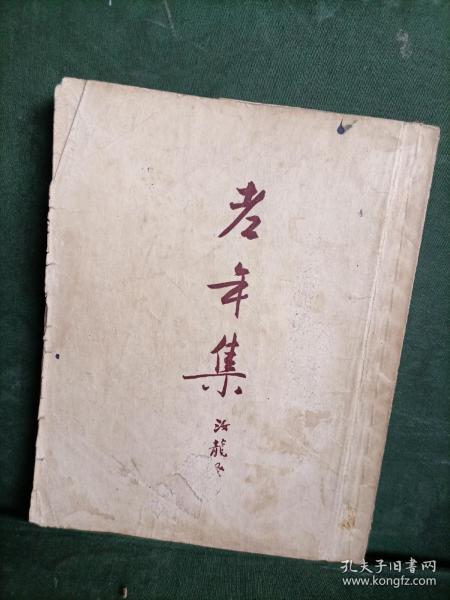 老年集
汝龍
孔夫子旧书网
www.kongfz.com